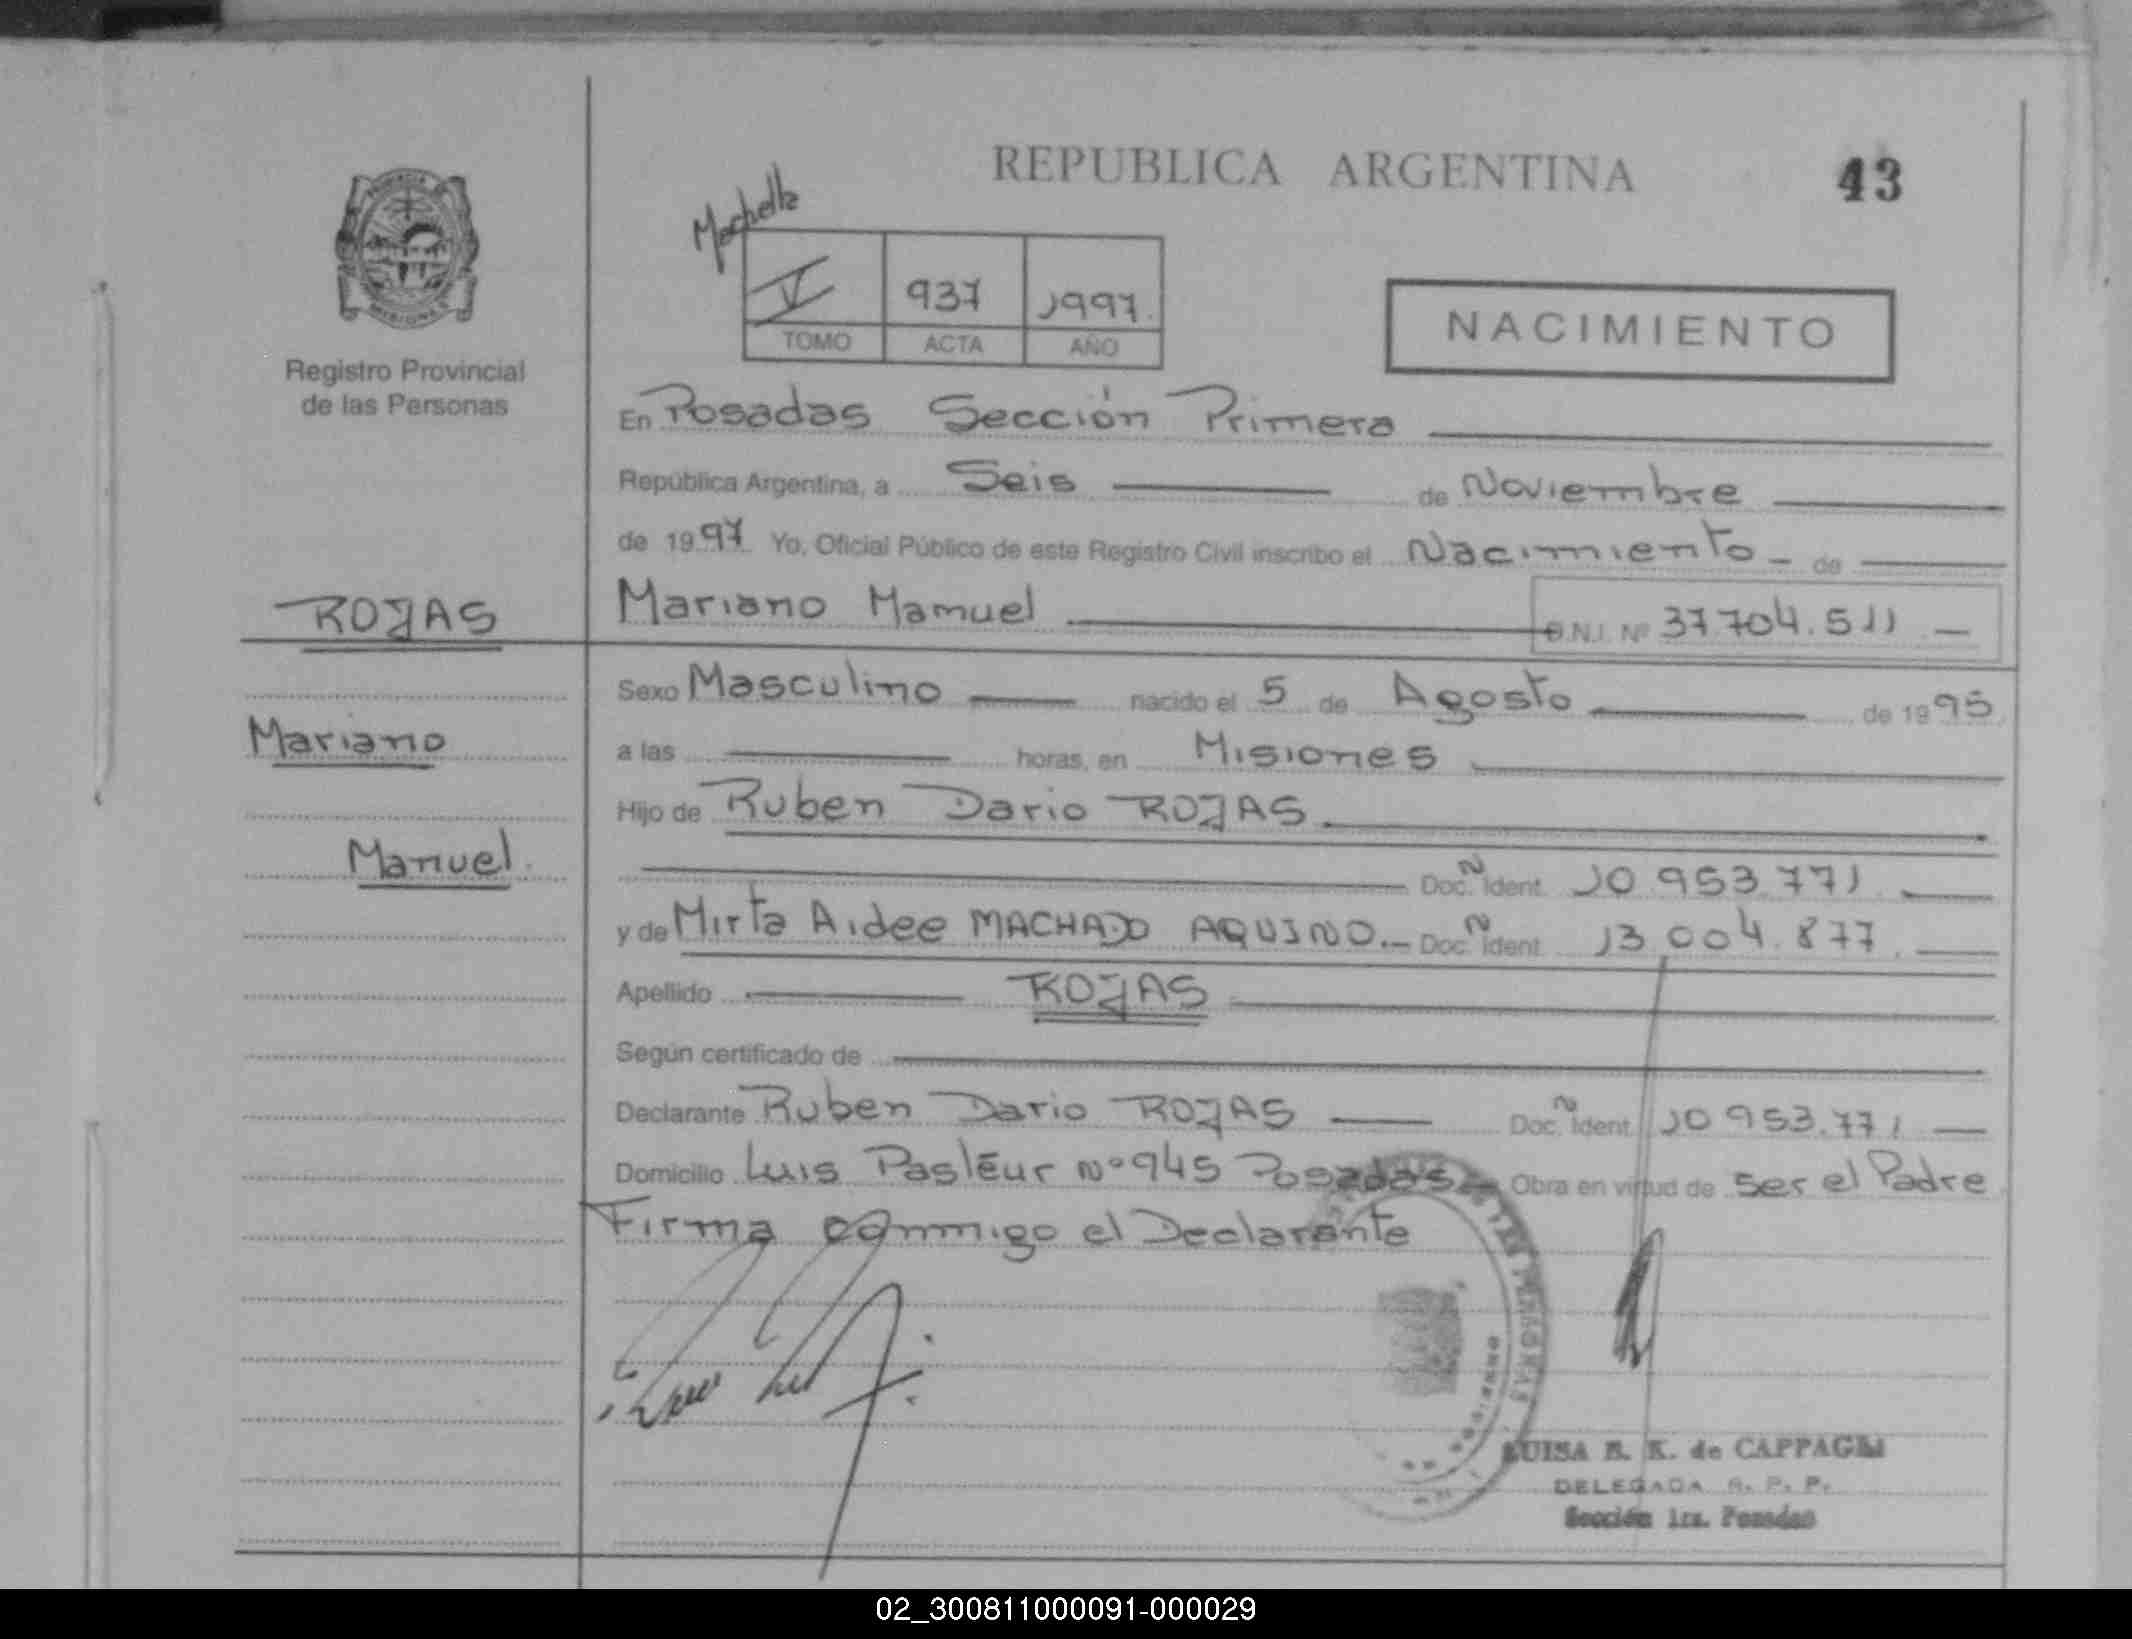 REPUBLICA ARGENTINA
43
PROVINCIA
MISIONES
Registro Provincial
de las Personas
V 937 1997.
TOMO ACTA AÑO
NACIMIENTO
En Posadas Sección Primera
República Argentina, a Seis de Noviembre
de 1997 Yo, Oficial Público de este Registro Civil inscribo el Nacimiento - de
ROJAS
Mariano Manuel D.N.I. Nº 37.704.511 -
Sexo Masculino nacido el 5 de Agosto de 1995
Mariano
a las horas, en Misiones
Hijo de Ruben Dario ROJAS.
Manuel.
Doc. Ident. N 10.953.771.
y de Mirta Aidee MACHADO AQUINO.- Doc. Ident. N 13.004.877.
Apellido ROJAS
Según certificado de
Declarante Ruben Dario ROJAS Doc. Ident. N 10.953.771 -
Domicilio Luis Pasteur Nº 945 Posadas.- Obra en virtud de ser el Padre
Firma conmigo el Declarante
LAS PERSONAS
LUISA B. K. de CAPPAGLI
DELEGADA R. P. P.
Sección 1ra. Posadas
02_300811000091-000029